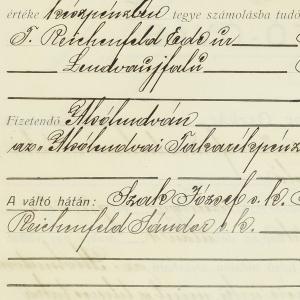 értéke készpénzben tegye számolásba tudó
T. Reichenfeld Ede úr
Lendvaujfalú
Fizetendő Alsólendván
az Alsólendvai Takarékpénz
A váltó hátán: Szak József s. k.
Reichenfeld Sándor s. k.